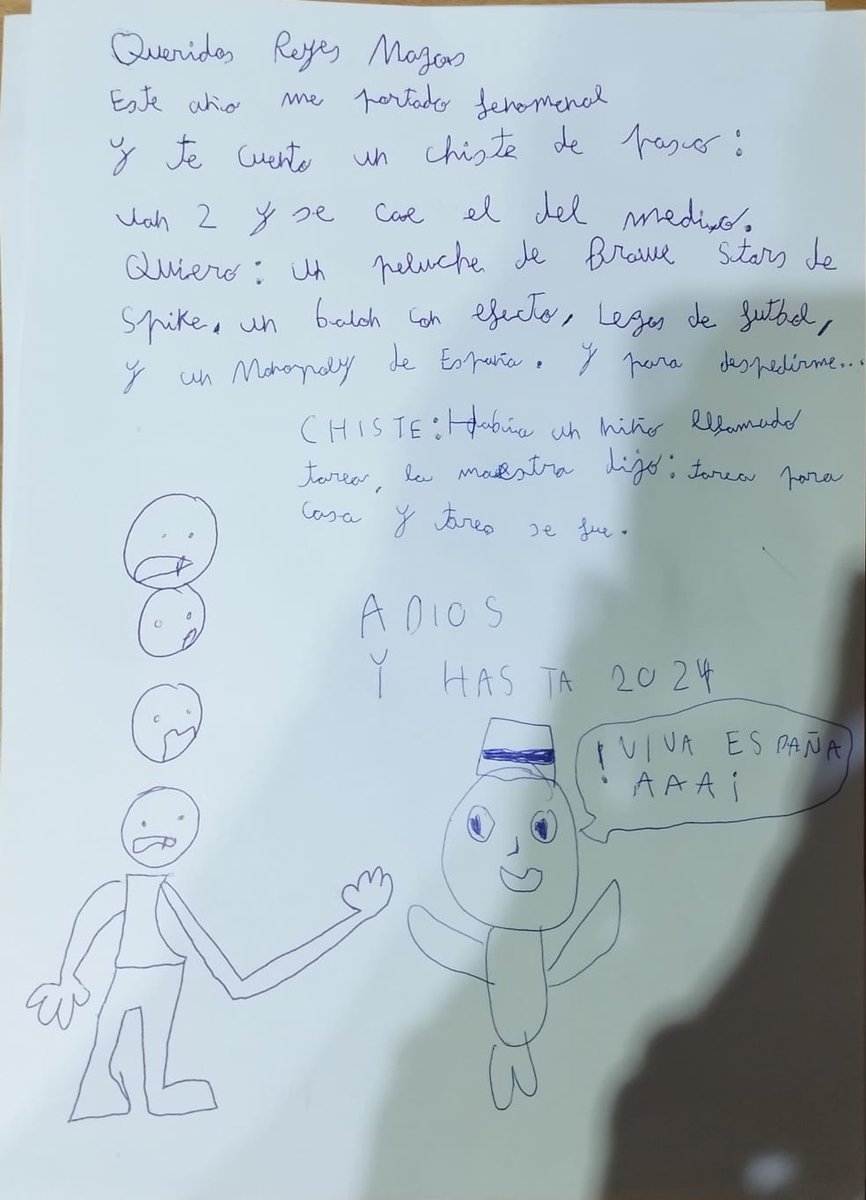 Queridos Reyes Magos
Este año me portado fenomenal
Y te cuento un chiste de paso:
Van 2 y se cae el del medio.
Quiero: Un peluche de Brawe Stars de
Spike, un balon con efecto, Legos de futbol,
y un Monopoly de España. Y para despedirme...
CHISTE: Habia un niño llamado
tarea, la maestra dijo: tarea para
casa y tarea se fue.
ADIOS
Y HASTA 2024
¡VIVA ESPAÑA
AAA¡